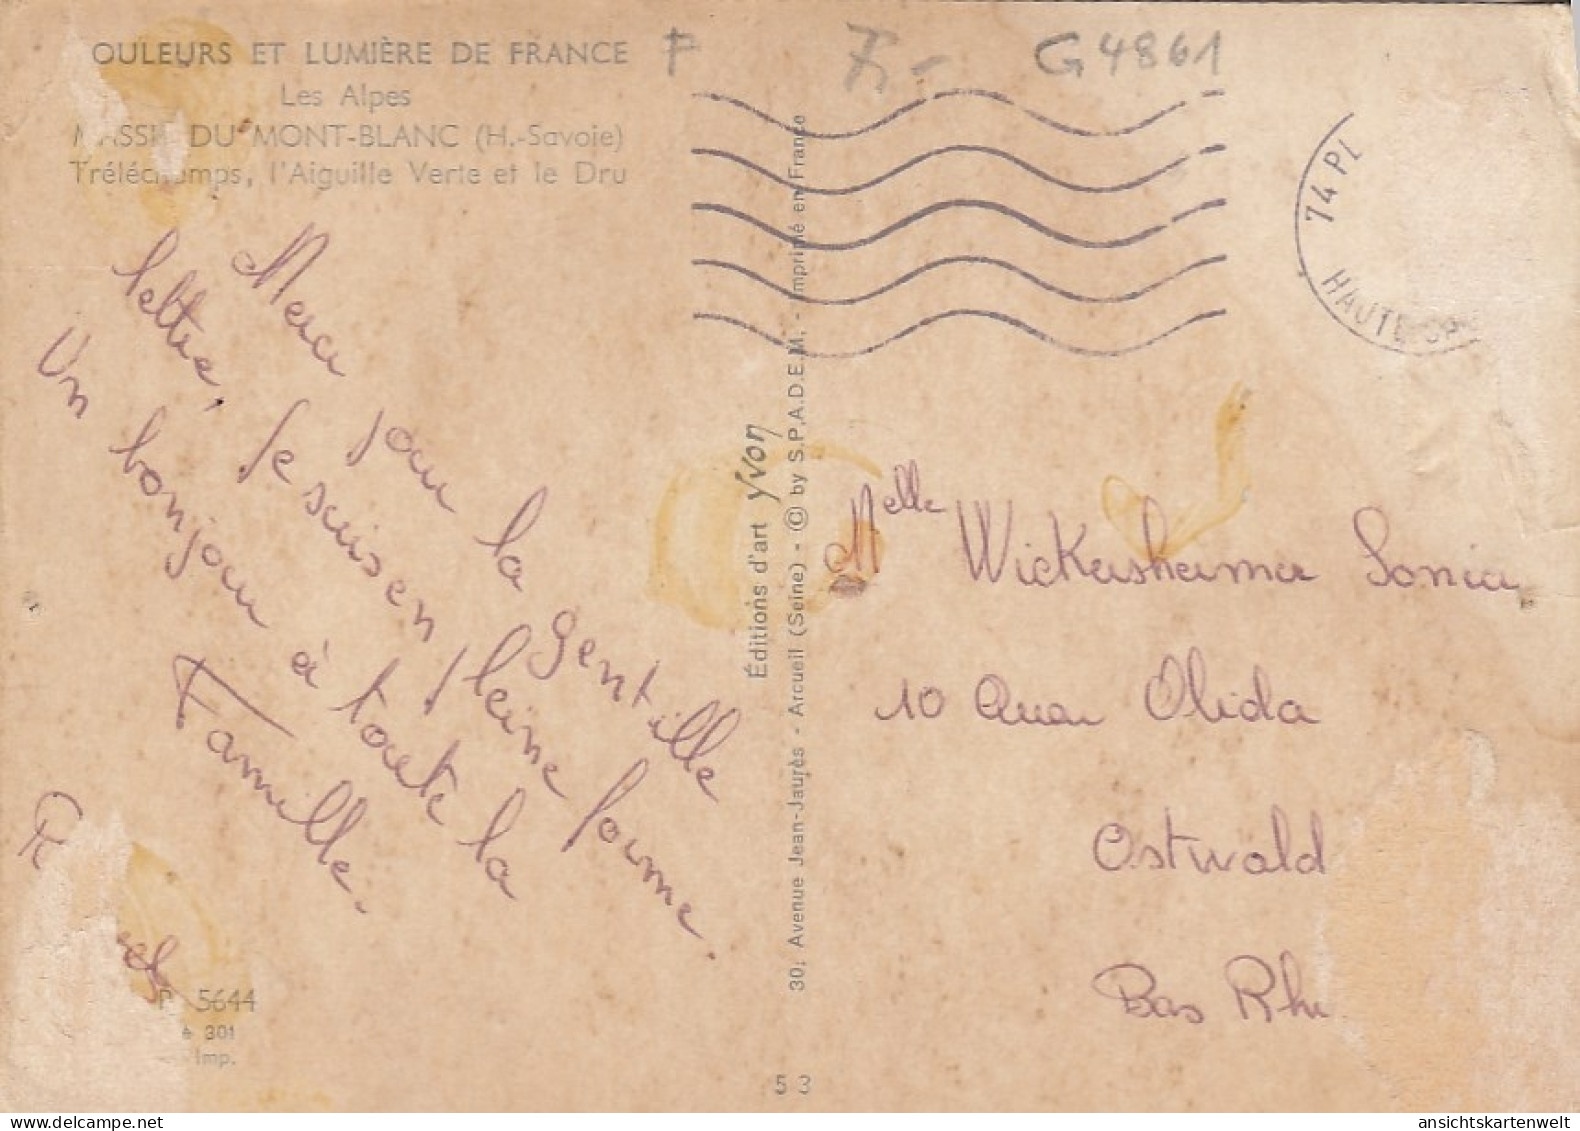 OULEURS ET LUMIÈRE DE FRANCE
Les Alpes
MASSIF DU MONT-BLANC (H.-Savoie)
Tréléchamps, l'Aiguille Verte et le Dru
F 7,- G4861
74 PL
HAUTE SA
Merci pour la gentille
lettre, Je suis en pleine forme.
Un bonjour à toute la
Famille.
P 5644
301
Imp.
Éditions d'art yvon
30, Avenue Jean-Jaurès - Arcueil (Seine) - © by S.P.A.D.E.M. - Imprimé en France
53
Melle Wickersheimer Sonia
10 Quai Olida
Ostwald
Bas Rhi
ansichtskartenwelt